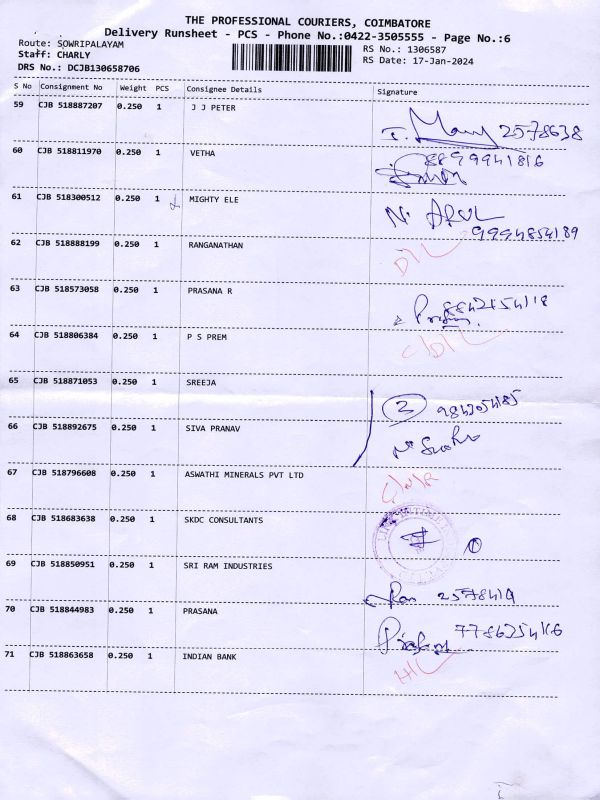 THE PROFESSIONAL COURIERS, COIMBATORE
Delivery Runsheet - PCS - Phone No.:0422-3505555 - Page No.:6
Route: SOWRIPALAYAM
RS No.: 1306587
Staff: CHARLY
RS Date: 17-Jan-2024
DRS No.: DCJB130658706
S No Consignment No Weight PCS Consignee Details Signature
59 CJB 518887207 0.250 1 J J PETER
2578638
60 CJB 518811970 0.250 1 VETHA
8899941816
61 CJB 518300512 0.250 1 MIGHTY ELE
N. ARUL
9994854189
62 CJB 518888199 0.250 1 RANGANATHAN
D/L
63 CJB 518573058 0.250 1 PRASANA R
64 CJB 518806384 0.250 1 P S PREM
65 CJB 518871053 0.250 1 SREEJA
2
66 CJB 518892675 0.250 1 SIVA PRANAV
67 CJB 518796608 0.250 1 ASWATHI MINERALS PVT LTD
68 CJB 518683638 0.250 1 SKDC CONSULTANTS
69 CJB 518850951 0.250 1 SRI RAM INDUSTRIES
70 CJB 518844983 0.250 1 PRASANA
71 CJB 518863658 0.250 1 INDIAN BANK